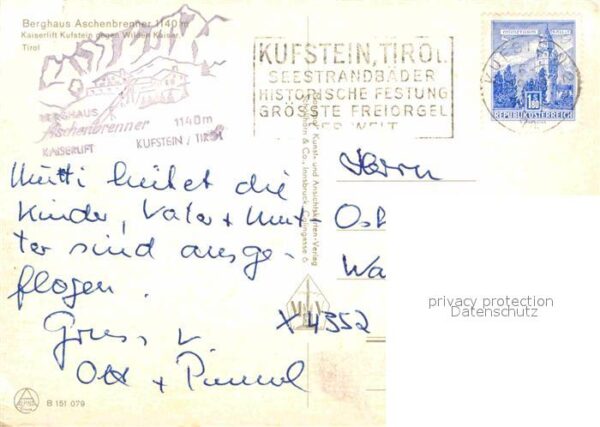 Berghaus Aschenbrenner 1140 m
Kaiserlift Kufstein gegen Wilden Kaiser
Tirol
BERGHAUS
Aschenbrenner 1140m
KAISERLIFT KUFSTEIN / TIROL
KUFSTEIN, TIROL
SEESTRANDBÄDER
HISTORISCHE FESTUNG
GRÖSSTE FREIORGEL
DER WELT
KUFSTEIN 2
1.50
REPUBLIK ÖSTERREICH
Kunst- und Ansichtskarten-Verlag
& Co., Innsbruck,
Mutti hütet die
Kinder, Vater + Mut-
ter sind ausge-
flogen.
Gruss v
Ott +
Herrn
Ost
Wa
X 4352
privacy protection
Datenschutz
B 151 079